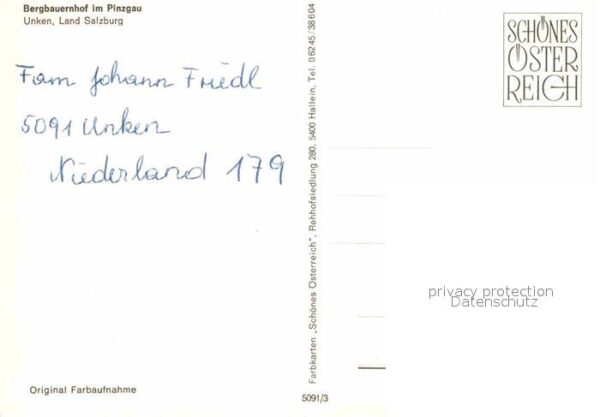 Bergbauernhof im Pinzgau
Unken, Land Salzburg
Fam Johann Friedl
5091 Unken
Niederland 179
Original Farbaufnahme
Farbkarten „Schönes Österreich", Rehhofsiedlung 280, 5400 Hallein, Tel. 06245/38604
5091/3
SCHÖNES
ÖSTER
REICH
privacy protection
Datenschutz